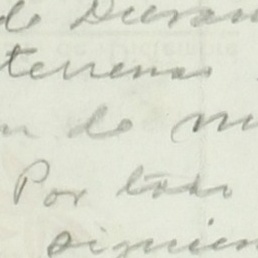 de Duran
terrenos
n de m
Por todo
siguien